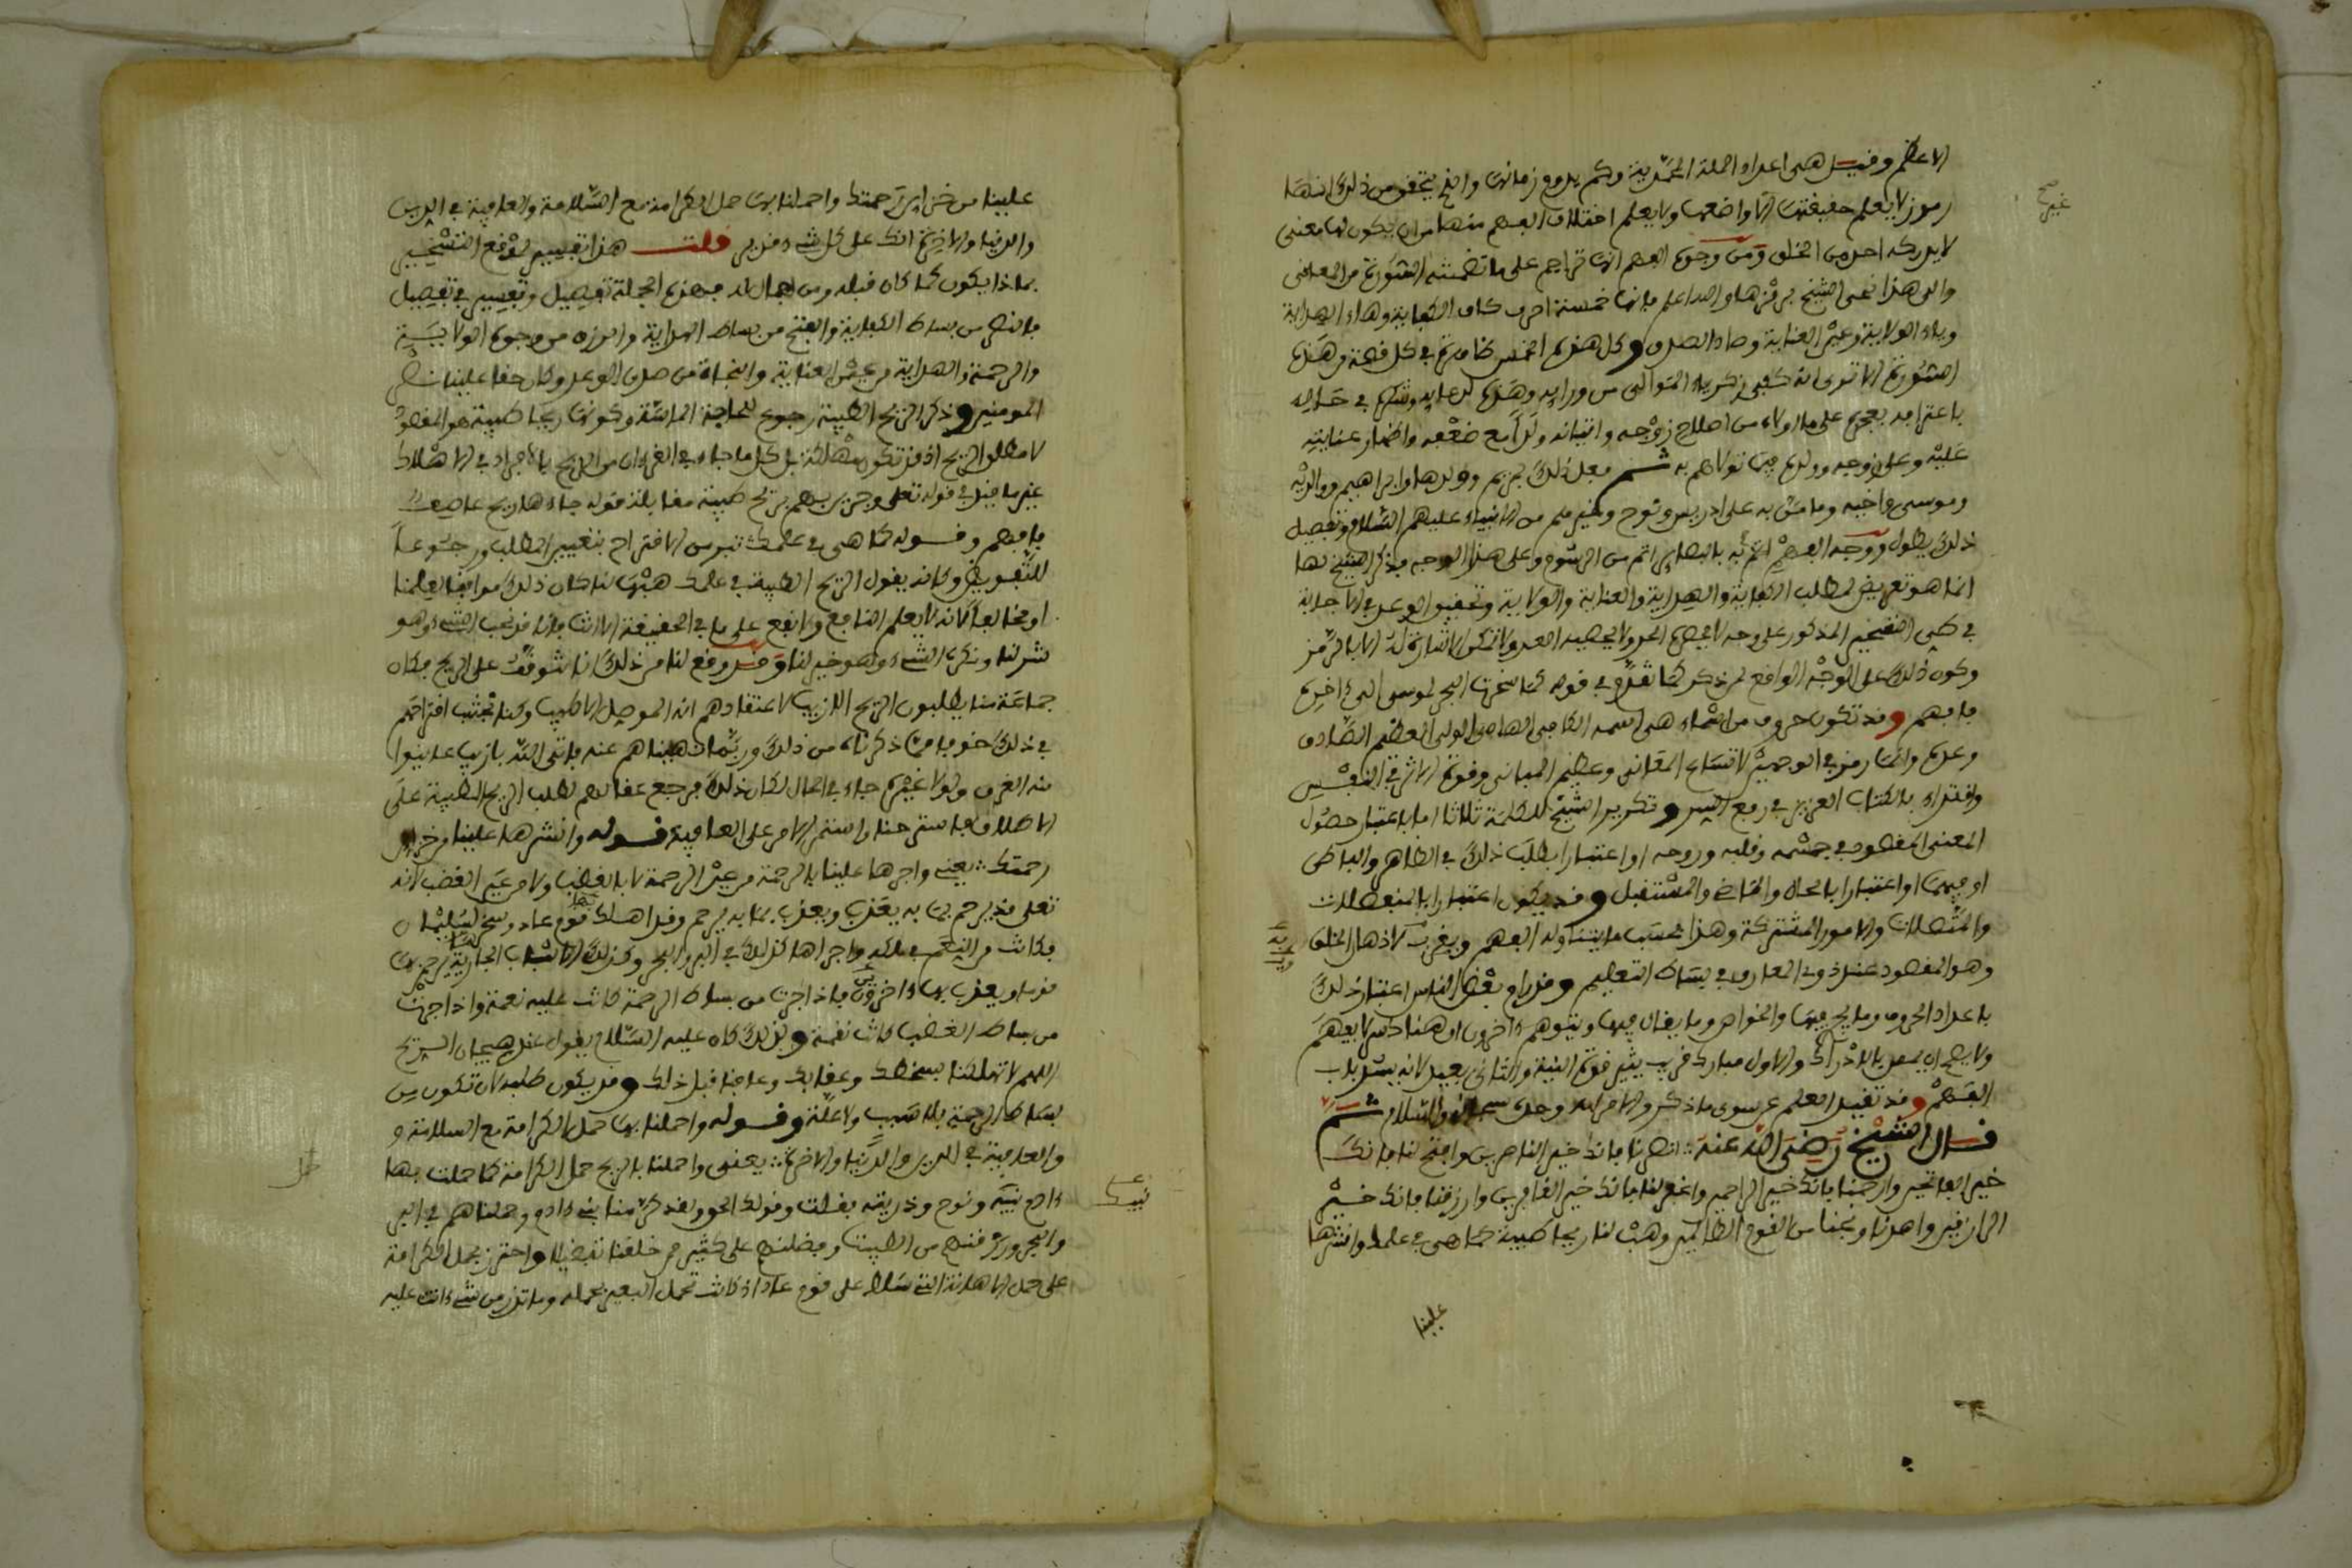 الاعظم وقيل هي اعداد الملة المحمدية وكم يدوم زمانها والذي يتحقق من ذلك انها
رموز لا يعلم حقيقتها الا واضعها ولا يعلم اختلاف الفهم منها من ان يكون لها معنى
لا يدركه احد من الخلق ومن وجوه الفهم انها تراجم على ما تضمنته السورة من المعاني
والى هذا نحى الشيخ برمزها والله اعلم فانها خمسة احرف كاف الكفاية وهاء الهداية
وياء الولاية وعين العناية وصاد الصدق وكل هذه الخمس ظاهرة في كل قصة من هذه
السورة الا ترى انه كفى زكرياء الموالي من ورايه وهداه لدعايه وشكره في حاله
باعترافه بعجزه على ما اولاه من اصلاح زوجه واتيانه ولدا مع ضعفه واظهار عنايته
عليه وعلى زوجه وولده فيما تولاهم به ثم فعل ذلك بمريم وولدها وابراهيم ووالديه
وموسى واخيه وما من به على ادريس ونوح وغيرهم من الانبياء عليهم السلام وتفصيل
ذلك يطول ووجه الفهم
انما هو تعريض لطلب الكفاية والهداية والعناية والولاية وتحقيق الوعد في الاجابة
في المذكور على وجه لا يحصره الحد ولا يحصيه العد ولا تمكن الاشارة له الا بالرمز
وكون ذلك على الوجه الواقع لمن ذكر كما تقدم في قوله كما سخرت البحر لموسى الى اخره
فافهم وقد تكون حروف من اسماء هي اسمه الكافي الهادي الولي العظيم الصادق
وعده وانما رمز في الوجهين لاتساع المعاني وعظيم المباني وقوة الاثر في النفس
واقتداء بالكتاب العزيز في رمع السر وتكرير الشيخ للكلمة ثلاثا اما باعتبار حصول
المعنى المقصود في جسمه وقلبه وروحه او اعتبارا بطلب ذلك في الظاهر والباطن
او فيهما او اعتبارا بالحال والماضي والمستقبل وقد يكون اعتبارا بالمنفصلات
والمتصلات والامور المشتركة وهذا بحسب ما يتناوله الفهم ويقرب لاذهان الخلق
وهو المقصود عند ذوي المعارف في بساط التعليم وقد رام بعض الناس اعتبار ذلك
باعداد الحروف وما يجري فيها والخواص وما يقال فيها ويتوهم اخرون ان هنالك سرا يفهم
ولا يصح ان يعمل بالادراك والاول مبارك قريب يثير قوة النية والثاني بعيد لانه يسد باب
الفهم وقد تقيد العلم عن سوى ما ذكر والامر لله وحده سبحانه والسلام ثم
قال الشيخ رضي الله عنه انصرنا فانك خير الناصرين وافتح لنا فانك
خير الفاتحين وارحمنا فانك خير الراحمين واغفر لنا فانك خير الغافرين وارزقنا فانك خير
الرازقين واهدنا ونجنا من القوم الظالمين وهب لنا ريحا طيبة كما هي في علمك وانشرها
علينا
علينا من خزاين رحمتك واحملنا بها حمل الكرامة مع السلامة والعافية في الدين
والدنيا والاخرة انك على كل شيء قدير قلت هذا تقسيم
بماذا يكون كما كان قبله ومن اجمال له فهذه الجملة تفصيل وتفسير في تفصيل
فالنصر من بساط الكفاية والفتح من بساط الهداية والرزق من وجوه الولاية
والرحمة والهداية من عين العناية والنجاة من صدق الوعد وكان حقا علينا نصر
المومنين وذكر الريح الطيبة رجوع للحاجة الماسة وكونها ريحا طيبة هو المقصود
لا مطلق الريح اذ قد تكون مهلكة بل كل ما جاء في القرءان من الريح بالافراد في الاهلاك
غير ما قيل في قوله تعلى وجرين بهم بريح طيبة مقابلة قوله جاءها ريح عاصف
فافهم وقوله كما هي في علمك تبر من الاقتراح بتعيين الطلب ورجوعا
للتفويض وكانه يقول الريح الطيبة في علمك هبها لنا كان ذلك موافقا لعلمنا
او مخالفا لانه لا يعلم النافع والانفع على ما في الحقيقة الا انت فانا قد نحب الشيء وهو
شر لنا ونكره الشيء وهو خير لنا وقد وقع لنا من ذلك انا على الريح فكان
جماعة منا يطلبون الريح الازيب لاعتقادهم انه الموصل الاطيب وكنا نجتنب اقتراحهم
في ذلك خوفا مما ذكرناه من ذلك وربما نهيناهم عنه فاتى الله بازيب عاينوا
منه الغرق ولولا غيره جاء في الحال لكان ذلك فرجع عقلاهم لطلب الريح الطيبة على
الاطلاق فاسترحنا واستمر الامر على العافية قوله وانشرها علينا من خزاين
رحمتك يعني واجرها علينا بالرحمة من عين الرحمة لا بالغضب ولا من عين الغضب لانه
تعلى قد يرحم بما به يعذب ويعذب بما به يرحم وقد اهلك قوم عاد وسخر لسليمان
فكانت من النعم في ملكه واجراها كذلك في البر والبحر وكذلك الاسباب الجارية يرحم بها
قوما ويعذب بها ءاخرون فاذا جرت من بساط الرحمة كانت عليه نعمة واذا جرت
من بساط الغضب كانت نقمة ولذلك كان عليه السلام يقول عند هيجان الريح
اللهم لا تهلكنا بسخطك وعذابك وعافنا قبل ذلك وقد يكون طلبه لان تكون من
بساط الرحمة بلا سبب ولا علة وقوله واحملنا بها حمل الكرامة مع السلامة و
والعافية في الدين والدنيا والاخرة يعني واحملنا بالريح حمل الكرامة كما حملت بها
ءادم نبيك ونوح وذريته بقلت وقولك الحق ولقد كرمنا بني ءادم وحملناهم في البر
والبحر ورزقنهم من الطيبت وفضلنهم على كثير ممن خلقنا تفضيلا واحترز بحمل الكرامة
على حمل الاهانة التي سلط على قوم عاد اذ كانت تحمل البعير بحمله وما تذر من شيء اتت عليه